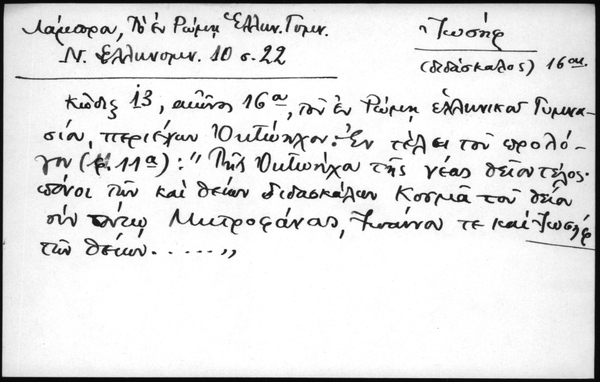 Λάμπρου, Τὸ ἐν Ρώμῃ Ἑλλην. Γυμν.
Ν. Ἑλληνομν. 10 σ. 22
Ἰωσήφ
(διδάσκαλος) 16 αι.
Κῶδιξ 13, αἰῶνος 16α, τοῦ ἐν Ρώμῃ ἑλληνικοῦ Γυμνα-
σίου, περιέχων Ὀκτώηχον. Ἐν τέλει τοῦ προλό-
γου (φ. 11α): "Τῆς Ὀκτωήχου τῆς νέας θεῖον τέλος·
πόνοι τῶν καὶ θείων διδασκάλων Κοσμᾶ τοῦ θείου
σὺν τούτῳ Μητροφάνους, Ἰωάννου τε καὶ Ἰωσὴφ
τῶν θείων......"